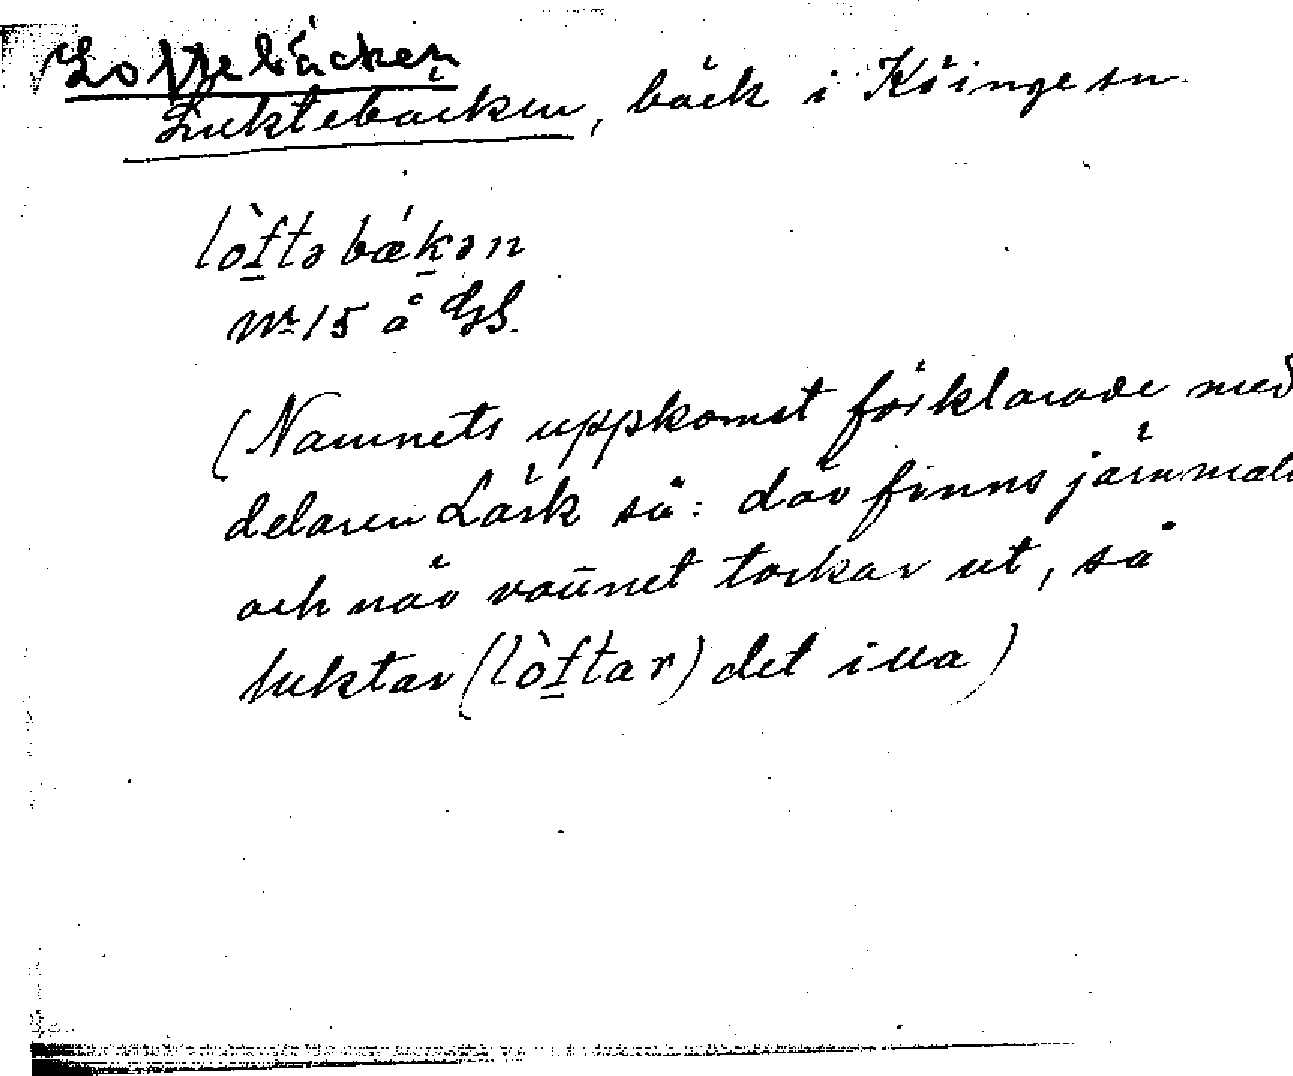 Loftebäcken
Luktebäcken, bäck i Köinge sn
lòftəbǽkən
Nr 15 å GS.
(Namnets uppkomst förklarade med
delaren Lärk så: där finns järnmalm
och när vattnet torkar ut, så
luktar (lòftar) det illa)